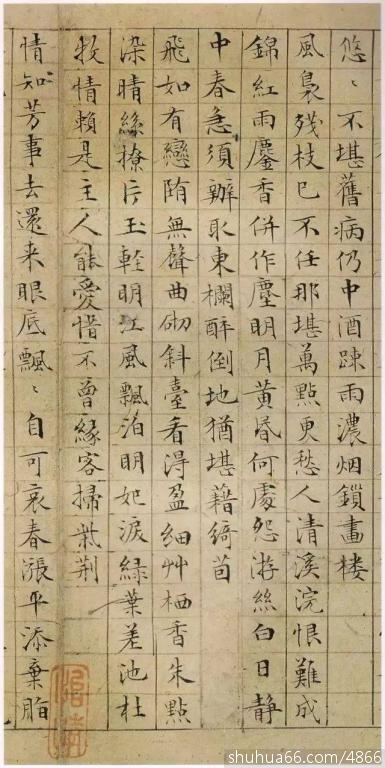 悠〻不堪舊病仍中酒踈雨濃烟鎖畫楼
風裊殘枝已不任那堪萬點更愁人清溪浣恨難成
錦紅雨鏖香併作塵明月黄昏何處怨游絲白日静
中春急須辦取東欄醉倒地猶堪藉綺茵
飛如有戀墮無聲曲砌斜臺看得盈細艸栖香朱點
染晴絲撩片玉輕明江風飄泊明妃淚緑葉差池杜
牧情賴是主人能愛惜不曾緣客掃柴荆
情知芳事去還来眼底飄〻自可哀春漲平添棄脂
shuhua66.com/4866